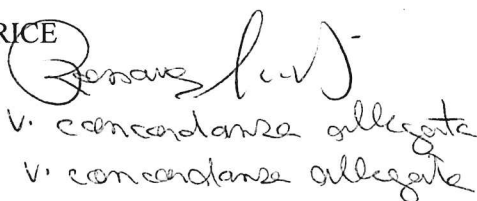 RICE
Rossana
V. concordanza allegata
V. concordanza allegata